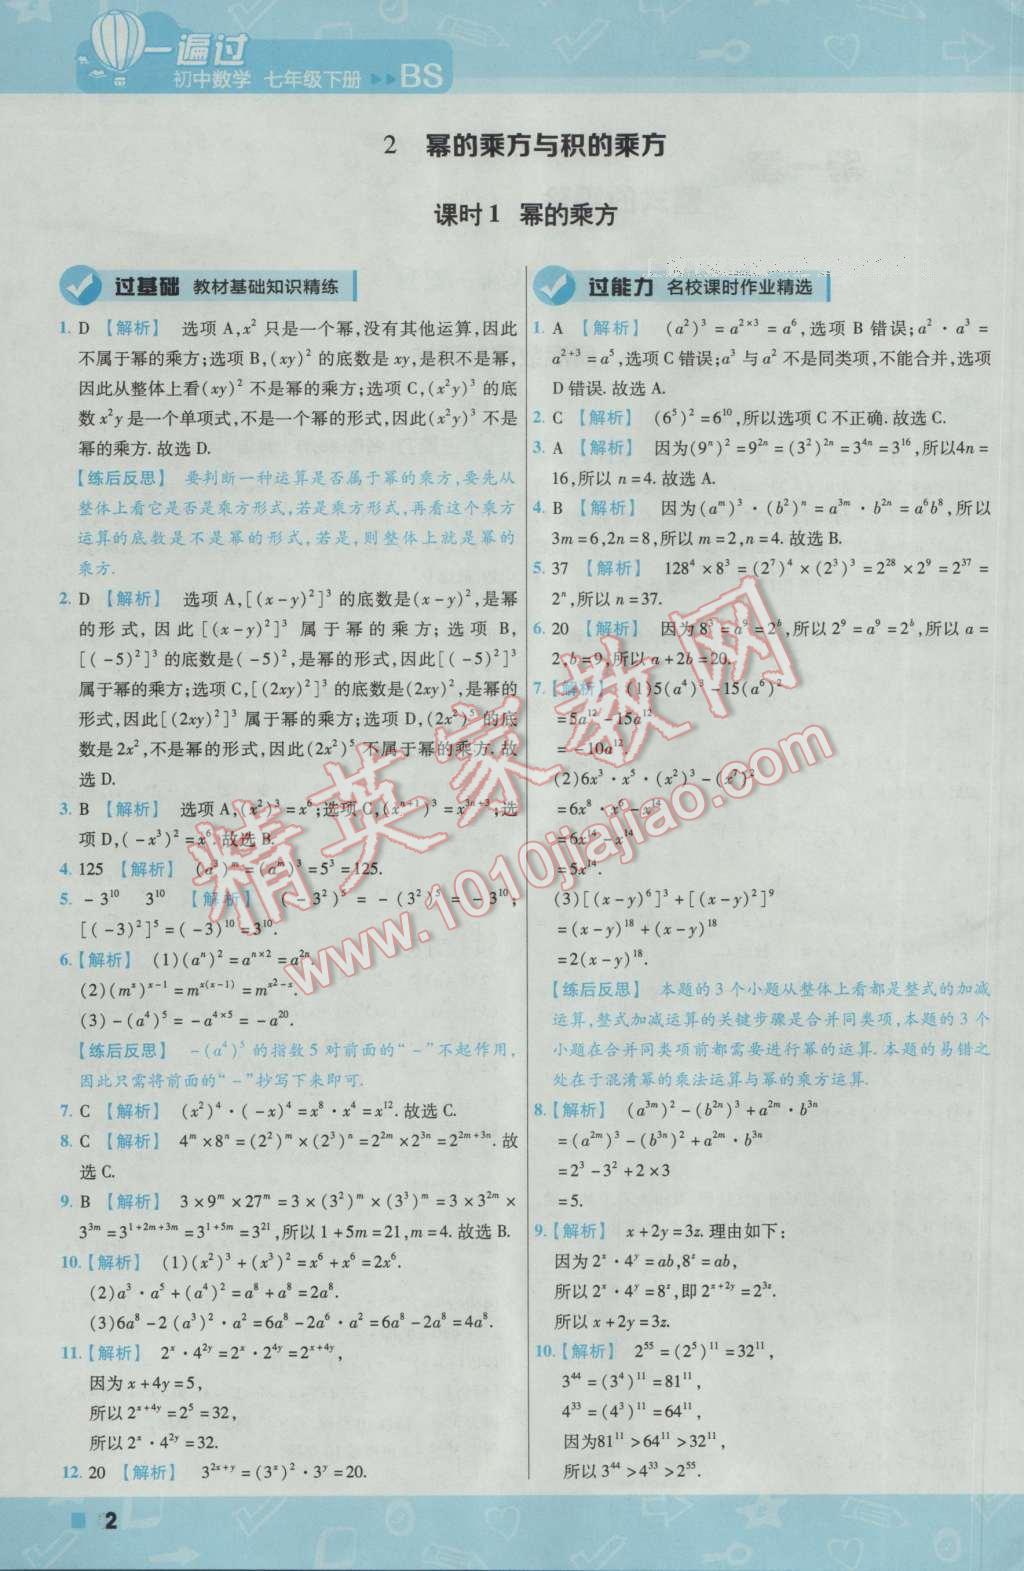 一遍过
初中数学 七年级下册 BS
2 幂的乘方与积的乘方
课时1 幂的乘方
过基础 教材基础知识精练
1. D 【解析】 选项A,x² 只是一个幂,没有其他运算,因此
不属于幂的乘方;选项B,(xy)² 的底数是xy,是积不是幂,
因此从整体上看(xy)² 不是幂的乘方;选项C,(x²y)³ 的底
数x²y是一个单项式,不是一个幂的形式,因此(x²y)³ 不是
幂的乘方.故选D.
【练后反思】 要判断一种运算是否属于幂的乘方,要先从
整体上看它是否是乘方形式,若是乘方形式,再看这个乘方
运算的底数是不是幂的形式,若是,则整体上就是幂的
乘方.
2. D 【解析】 选项A,[(x-y)²]³ 的底数是(x-y)²,是幂
的形式,因此[(x-y)²]³ 属于幂的乘方;选项B,
[(-5)²]³ 的底数是(-5)²,是幂的形式,因此[(-5)²]³
属于幂的乘方;选项C,[(2xy)²]³ 的底数是(2xy)²,是幂的
形式,因此[(2xy)²]³ 属于幂的乘方;选项D,(2x²)⁵ 的底
数是2x²,不是幂的形式,因此(2x²)⁵ 不属于幂的乘方.故
选D.
3. B 【解析】 选项A,(x²)³=x⁶;选项C,(xⁿ⁺¹)³=x³ⁿ⁺³;选
项D,(-x³)²=x⁶.故选B.
4. 125 【解析】 (a³)ᵐ=(aᵐ)³=5³=125.
5. -3¹⁰ 3¹⁰ 【解析】 (-3²)⁵=-(3²)⁵=-3¹⁰,
[(-3)²]⁵=(-3)¹⁰=3¹⁰.
6.【解析】 (1)(aⁿ)²=aⁿˣ²=a²ⁿ.
(2)(mˣ)ˣ⁻¹=m^{x(x-1)}=m^{x²-x}.
(3)-(a⁴)⁵=-a^{4×5}=-a²⁰.
【练后反思】 -(a⁴)⁵ 的指数5对前面的“-”不起作用,
因此只需将前面的“-”抄写下来即可.
7. C 【解析】 (x²)⁴·(-x)⁴=x⁸·x⁴=x¹².故选C.
8. C 【解析】 4ᵐ×8ⁿ=(2²)ᵐ×(2³)ⁿ=2²ᵐ×2³ⁿ=2²ᵐ⁺³ⁿ.故
选C.
9. B 【解析】 3×9ᵐ×27ᵐ=3×(3²)ᵐ×(3³)ᵐ=3×3²ᵐ×
3³ᵐ=3¹⁺²ᵐ⁺³ᵐ=3¹⁺⁵ᵐ=3²¹,所以1+5m=21,m=4.故选B.
10.【解析】 (1)(x²)³+(x³)²=x⁶+x⁶=2x⁶.
(2)a³·a⁵+(a⁴)²=a⁸+a⁸=2a⁸.
(3)6a⁸-2(a³)²·a²=6a⁸-2a⁶·a²=6a⁸-2a⁸=4a⁸.
11.【解析】 2ˣ·4²ʸ=2ˣ·2⁴ʸ=2ˣ⁺⁴ʸ,
因为x+4y=5,
所以2ˣ⁺⁴ʸ=2⁵=32,
所以2ˣ·4²ʸ=32.
12. 20 【解析】 3²ˣ⁺ʸ=(3ˣ)²·3ʸ=20.
过能力 名校课时作业精选
1. A 【解析】 (a²)³=a^{2×3}=a⁶,选项B错误;a²·a³=
a²⁺³=a⁵,选项C错误;a³与a² 不是同类项,不能合并,选项
D错误.故选A.
2. C 【解析】 (6⁵)²=6¹⁰,所以选项C不正确.故选C.
3. A 【解析】 因为(9ⁿ)²=9²ⁿ=(3²)²ⁿ=3⁴ⁿ=3¹⁶,所以4n=
16,所以n=4.故选A.
4. B 【解析】 因为(aᵐ)³·(b²)ⁿ=a³ᵐ·b²ⁿ=a⁶b⁸,所以
3m=6,2n=8,所以m=2,n=4.故选B.
5. 37 【解析】 128⁴×8³=(2⁷)⁴×(2³)³=2²⁸×2⁹=2³⁷=
2ⁿ,所以n=37.
6. 20 【解析】 因为8³=a⁹=2ᵇ,所以2⁹=a⁹=2ᵇ,所以a=
2,b=9,所以a+2b=20.
7.【解析】 (1)5(a⁴)³-15(a⁶)²
=5a¹²-15a¹²
=-10a¹².
(2)6x³·x⁵·(x²)³-(x⁷)²
=6x⁸·x⁶-x¹⁴
=6x¹⁴-x¹⁴
=5x¹⁴.
(3)[(x-y)⁶]³+[(x-y)²]⁹
=(x-y)¹⁸+(x-y)¹⁸
=2(x-y)¹⁸.
【练后反思】 本题的3个小题从整体上看都是整式的加减
运算,整式加减运算的关键步骤是合并同类项,本题的3个
小题在合并同类项前都需要进行幂的运算.本题的易错之
处在于混淆幂的乘法运算与幂的乘方运算.
8.【解析】 (a³ᵐ)²-(b²ⁿ)³+a²ᵐ·b³ⁿ
=(a²ᵐ)³-(b³ⁿ)²+a²ᵐ·b³ⁿ
=2³-3²+2×3
=5.
9.【解析】 x+2y=3z.理由如下:
因为2ˣ·4ʸ=ab,8ᶻ=ab,
所以2ˣ·4ʸ=8ᶻ,即2ˣ⁺²ʸ=2³ᶻ.
所以x+2y=3z.
10.【解析】 2⁵⁵=(2⁵)¹¹=32¹¹,
3⁴⁴=(3⁴)¹¹=81¹¹,
4³³=(4³)¹¹=64¹¹,
因为81¹¹>64¹¹>32¹¹,
所以3⁴⁴>4³³>2⁵⁵.
精英家教网
www.1010jiajiao.com
2